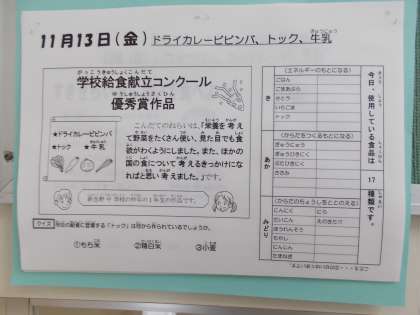 11月13日(金) ドライカレービビンバ、トック、牛乳
学校給食献立コンクール
優秀賞作品
★ドライカレービビンバ
★トック ★牛乳
こんだてのねらいは、「栄養を考え
て野菜をたくさん使い、見た目でも食
欲がわくようにしました。また、ほかの
国の食について考えるきっかけにな
ればと思い考えました。」です。
クイズ 今日の給食に登場する「トック」は何から作られているでしょうか。
①もち米 ②精白米 ③小麦
今日、使用している食品は 17 種類です。
き
(エネルギーのもとになる)
ごはん
ごまあぶら
さとう
トック
あか
(からだをつくるもとになる)
ぎゅうにゅう
ぎゅうひきにく
ぶたひきにく
ささみ
みどり
(からだのちょうしをととのえる)
にんにく にら
だいこん えのきたけ
ほうれんそう
もやし
にんじん
たまねぎ